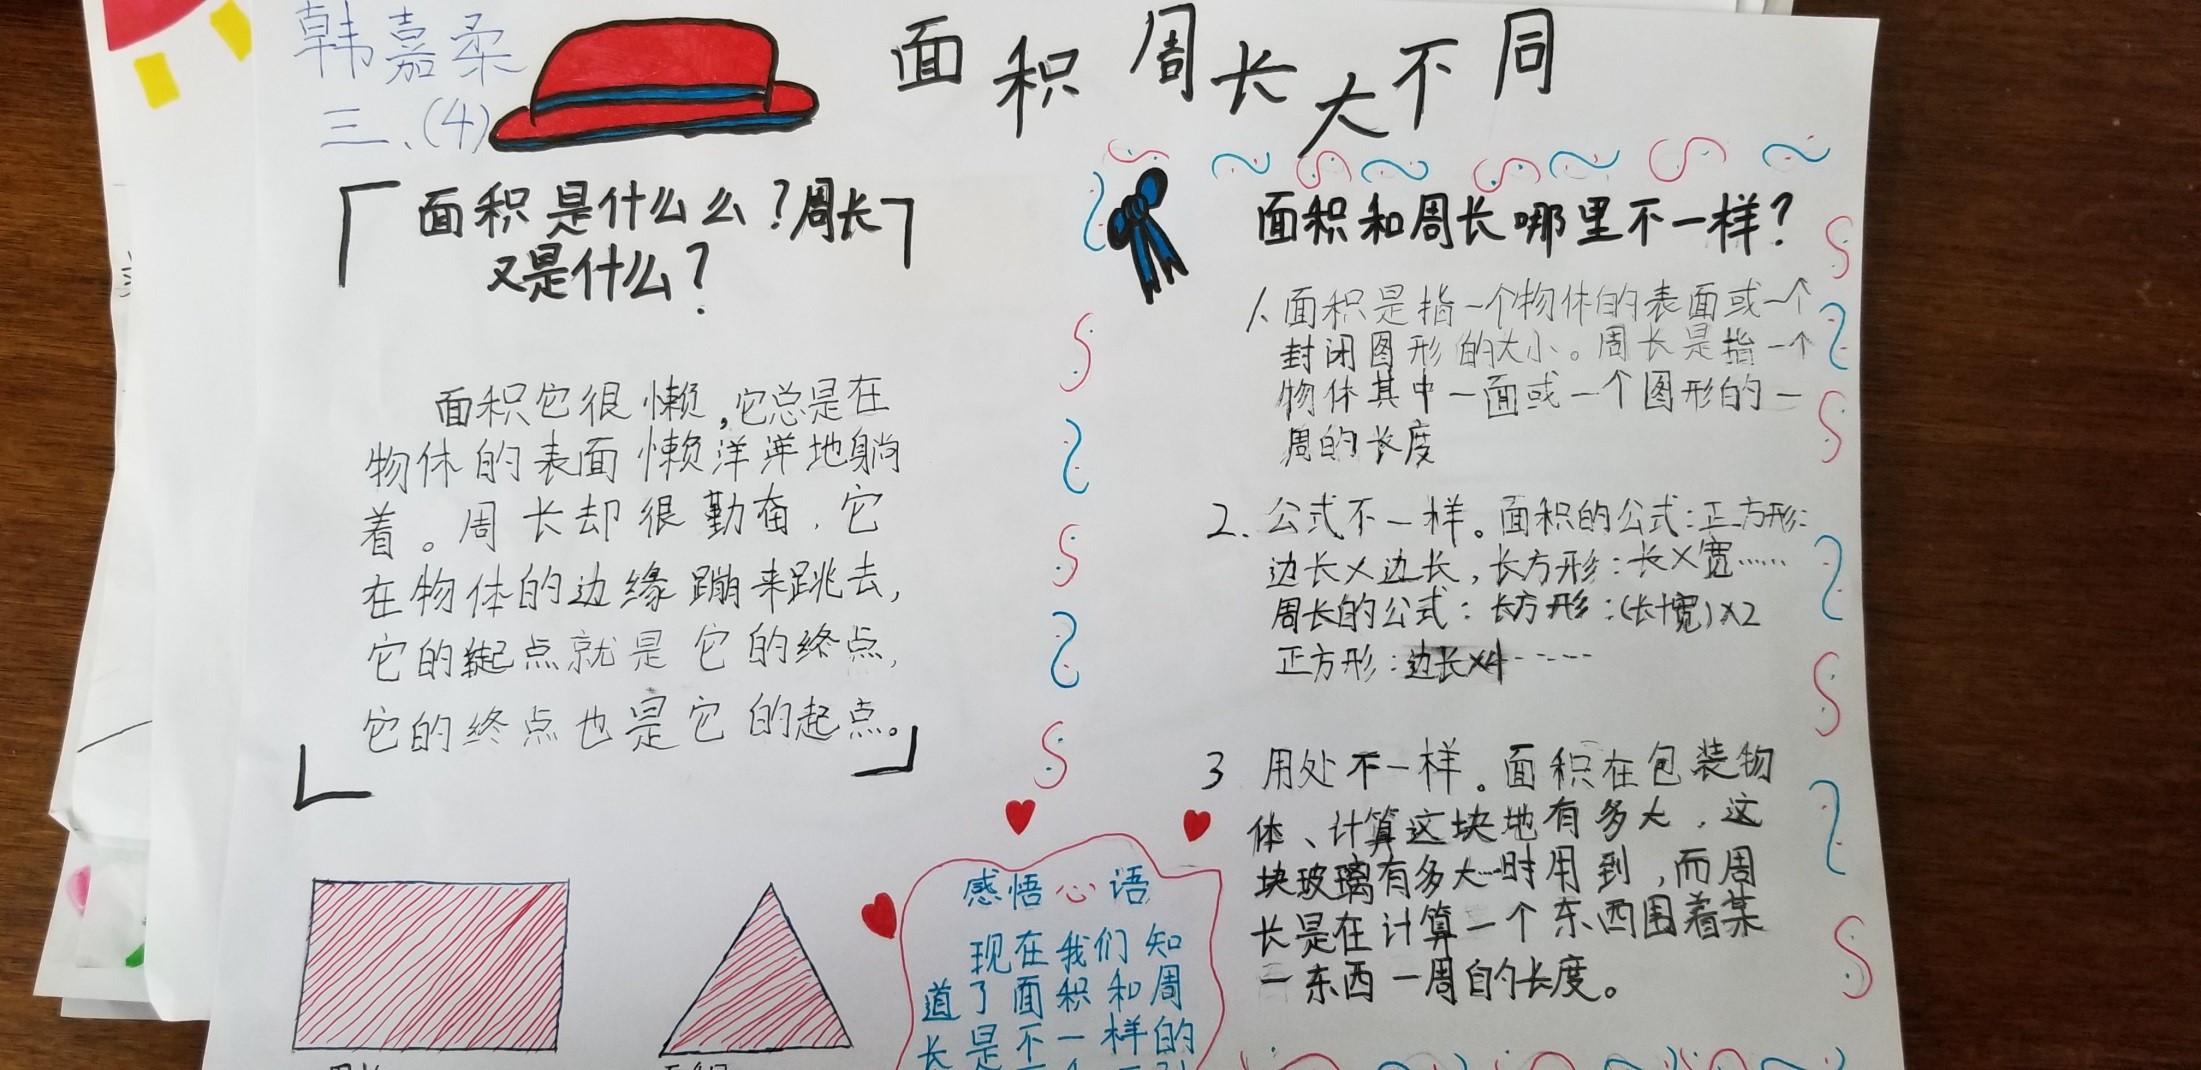 韩嘉柔
三、(4)
面积周长大不同
「面积是什么么？周长
又是什么？
面积它很懒，它总是在
物体的表面懒洋洋地躺
着。周长却很勤奋，它
在物体的边缘蹦来跳去，
它的起点就是它的终点，
它的终点也是它的起点。」
面积和周长哪里不一样？
1、面积是指一个物体的表面或一个
封闭图形的大小。周长是指一个
物体其中一面或一个图形的一
周的长度
2、公式不一样。面积的公式：正方形：
边长×边长，长方形：长×宽……
周长的公式：长方形：（长+宽）×2
正方形：边长×4……
3 用处不一样。面积在包装物
体、计算这块地有多大，这
块玻璃有多大…时用到，而周
长是在计算一个东西围着某
一东西一周的长度。
感悟心语
现在我们知
道了面积和周
长是不一样的